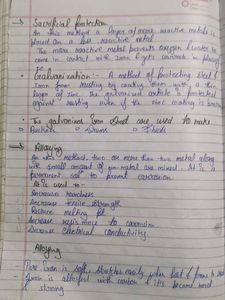 → Sacrificial protection
In this method a layer of more reactive metals is
placed on a less reactive metal.
The more reactive metal prevents oxygen & water to
come in contact with
• Galvanisation:- A method of protecting steel &
Iron from rusting by coating them with a thin
layer of zinc. The galvanised article is protected
against rusting even if the zinc coating is
• The galvanised Iron are used to make
Buckets Sheds
→ Alloying
In this method, two or more than two metal along
with small amount of non metal are mixed. It is a
permanent to prevent corrosion.
It is used to -
Increase
Increase tensile strength
Reduce melting pt
Increase resistance to corrosion
Decrease Electrical conductivity.
Alloying
Pure iron is soft, stretches easily when hot
Iron is alloyed with carbon & it becomes hard
strong